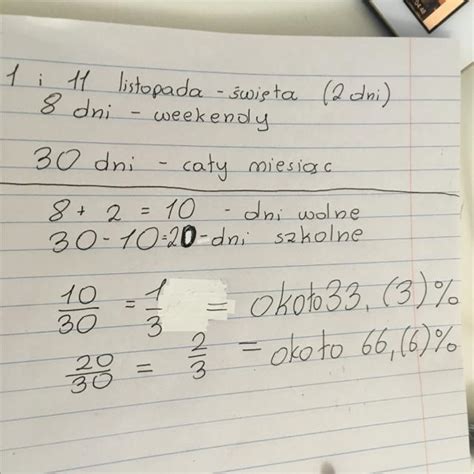 1 i 11 listopada - święta (2 dni)
8 dni - weekendy
30 dni - cały miesiąc
8 + 2 = 10 - dni wolne
30 - 10 = 20 - dni szkolne
10/30 = 1/3 = około 33,(3)%
20/30 = 2/3 = około 66,(6)%